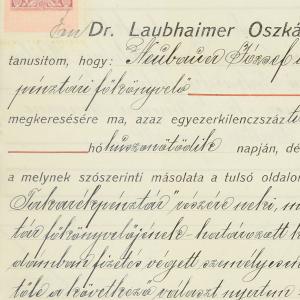 Én Dr. Laubhaimer Oszká
tanusitom, hogy: Neubauer József
pénztári főkönyvelő
megkeresésére ma, azaz egyezerkilenczszázti
hó huszonötödik napján, dé
a melynek szószerinti másolata a tulsó oldalo
Takarékpénztár" részére neki, m
tár főkönyvelőjének határozott k
damban fizetés végett személyesen
tőle a következő választ nyertem